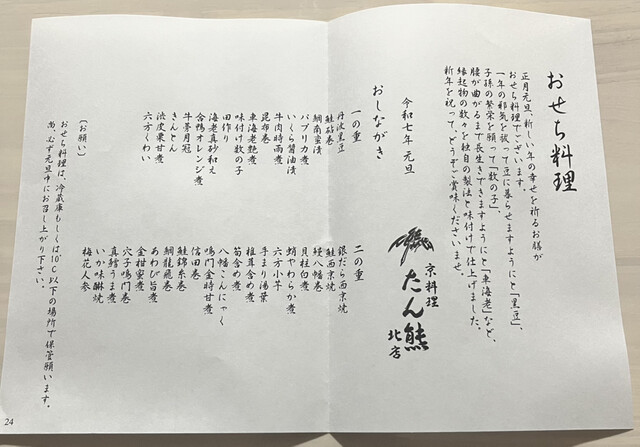 おせち料理
正月元旦、新しい年の幸せを祈るお膳が
おせち料理でございます。
一年の邪気を祓って豆に暮らせますようにと「黒豆」、
子孫の繁栄を願って「数の子」、
腰が曲がるまで長生きできますようにと「車海老」など、
縁起物の数々を独自の製法と味付けで仕上げました。
新年を祝って、どうぞご賞味くださいませ。
令和七年 元旦
京料理
たん熊
北店
おしながき
一の重
丹波黒豆
鮭砧巻
鯛南蛮漬
パプリカ煮
いくら醤油漬
牛肉時雨煮
昆布巻
車海老艶煮
味付け数の子
田作り
海老真砂和え
合鴨オレンジ煮
牛蒡月冠
きんとん
渋皮栗甘煮
六方くわい
二の重
銀だら西京焼
鮭西京焼
鰻八幡巻
貝柱白煮
蛸やわらか煮
六方小芋
手まり湯葉
椎茸含め煮
筍含め煮
八幡こんにゃく
鳴門金時甘煮
信田巻
鮭錦糸巻
鯛龍飛巻
あわび旨煮
金柑蜜煮
穴子鳴門巻
真鱈うま煮
いか味醂焼
梅花人参
〔お願い〕
おせち料理は、冷蔵庫もしくは10℃以下の場所で保管願います。
尚、必ず元旦中にお召し上がり下さい。
24